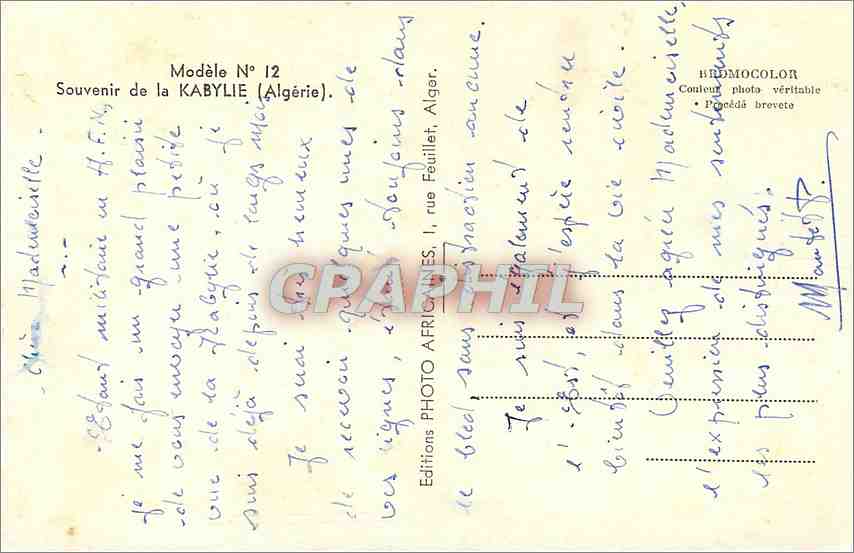 Modèle N° 12
Souvenir de la KABYLIE (Algérie).
BROMOCOLOR
Couleur photo véritable
• Procédé breveté
Editions PHOTO AFRICAINES, 1, rue Feuillet, Alger.
CPAPHIL
Chère Mademoiselle
Etant militaire en A.F.N,
je me fais un grand plaisir
de vous envoyer une petite
vue de la Kabylie, où je
suis déjà depuis de longs mois
Je suis très heureux
de recevoir quelques unes de
vos lignes, étant toujours dans
le bled, sans distraction aucune.
Je suis également de
l'Est, et j'espère rentrer
bientôt dans la vie civile.
Veuillez agréer Mademoiselle,
l'expression de mes sentiments
les plus distingués.